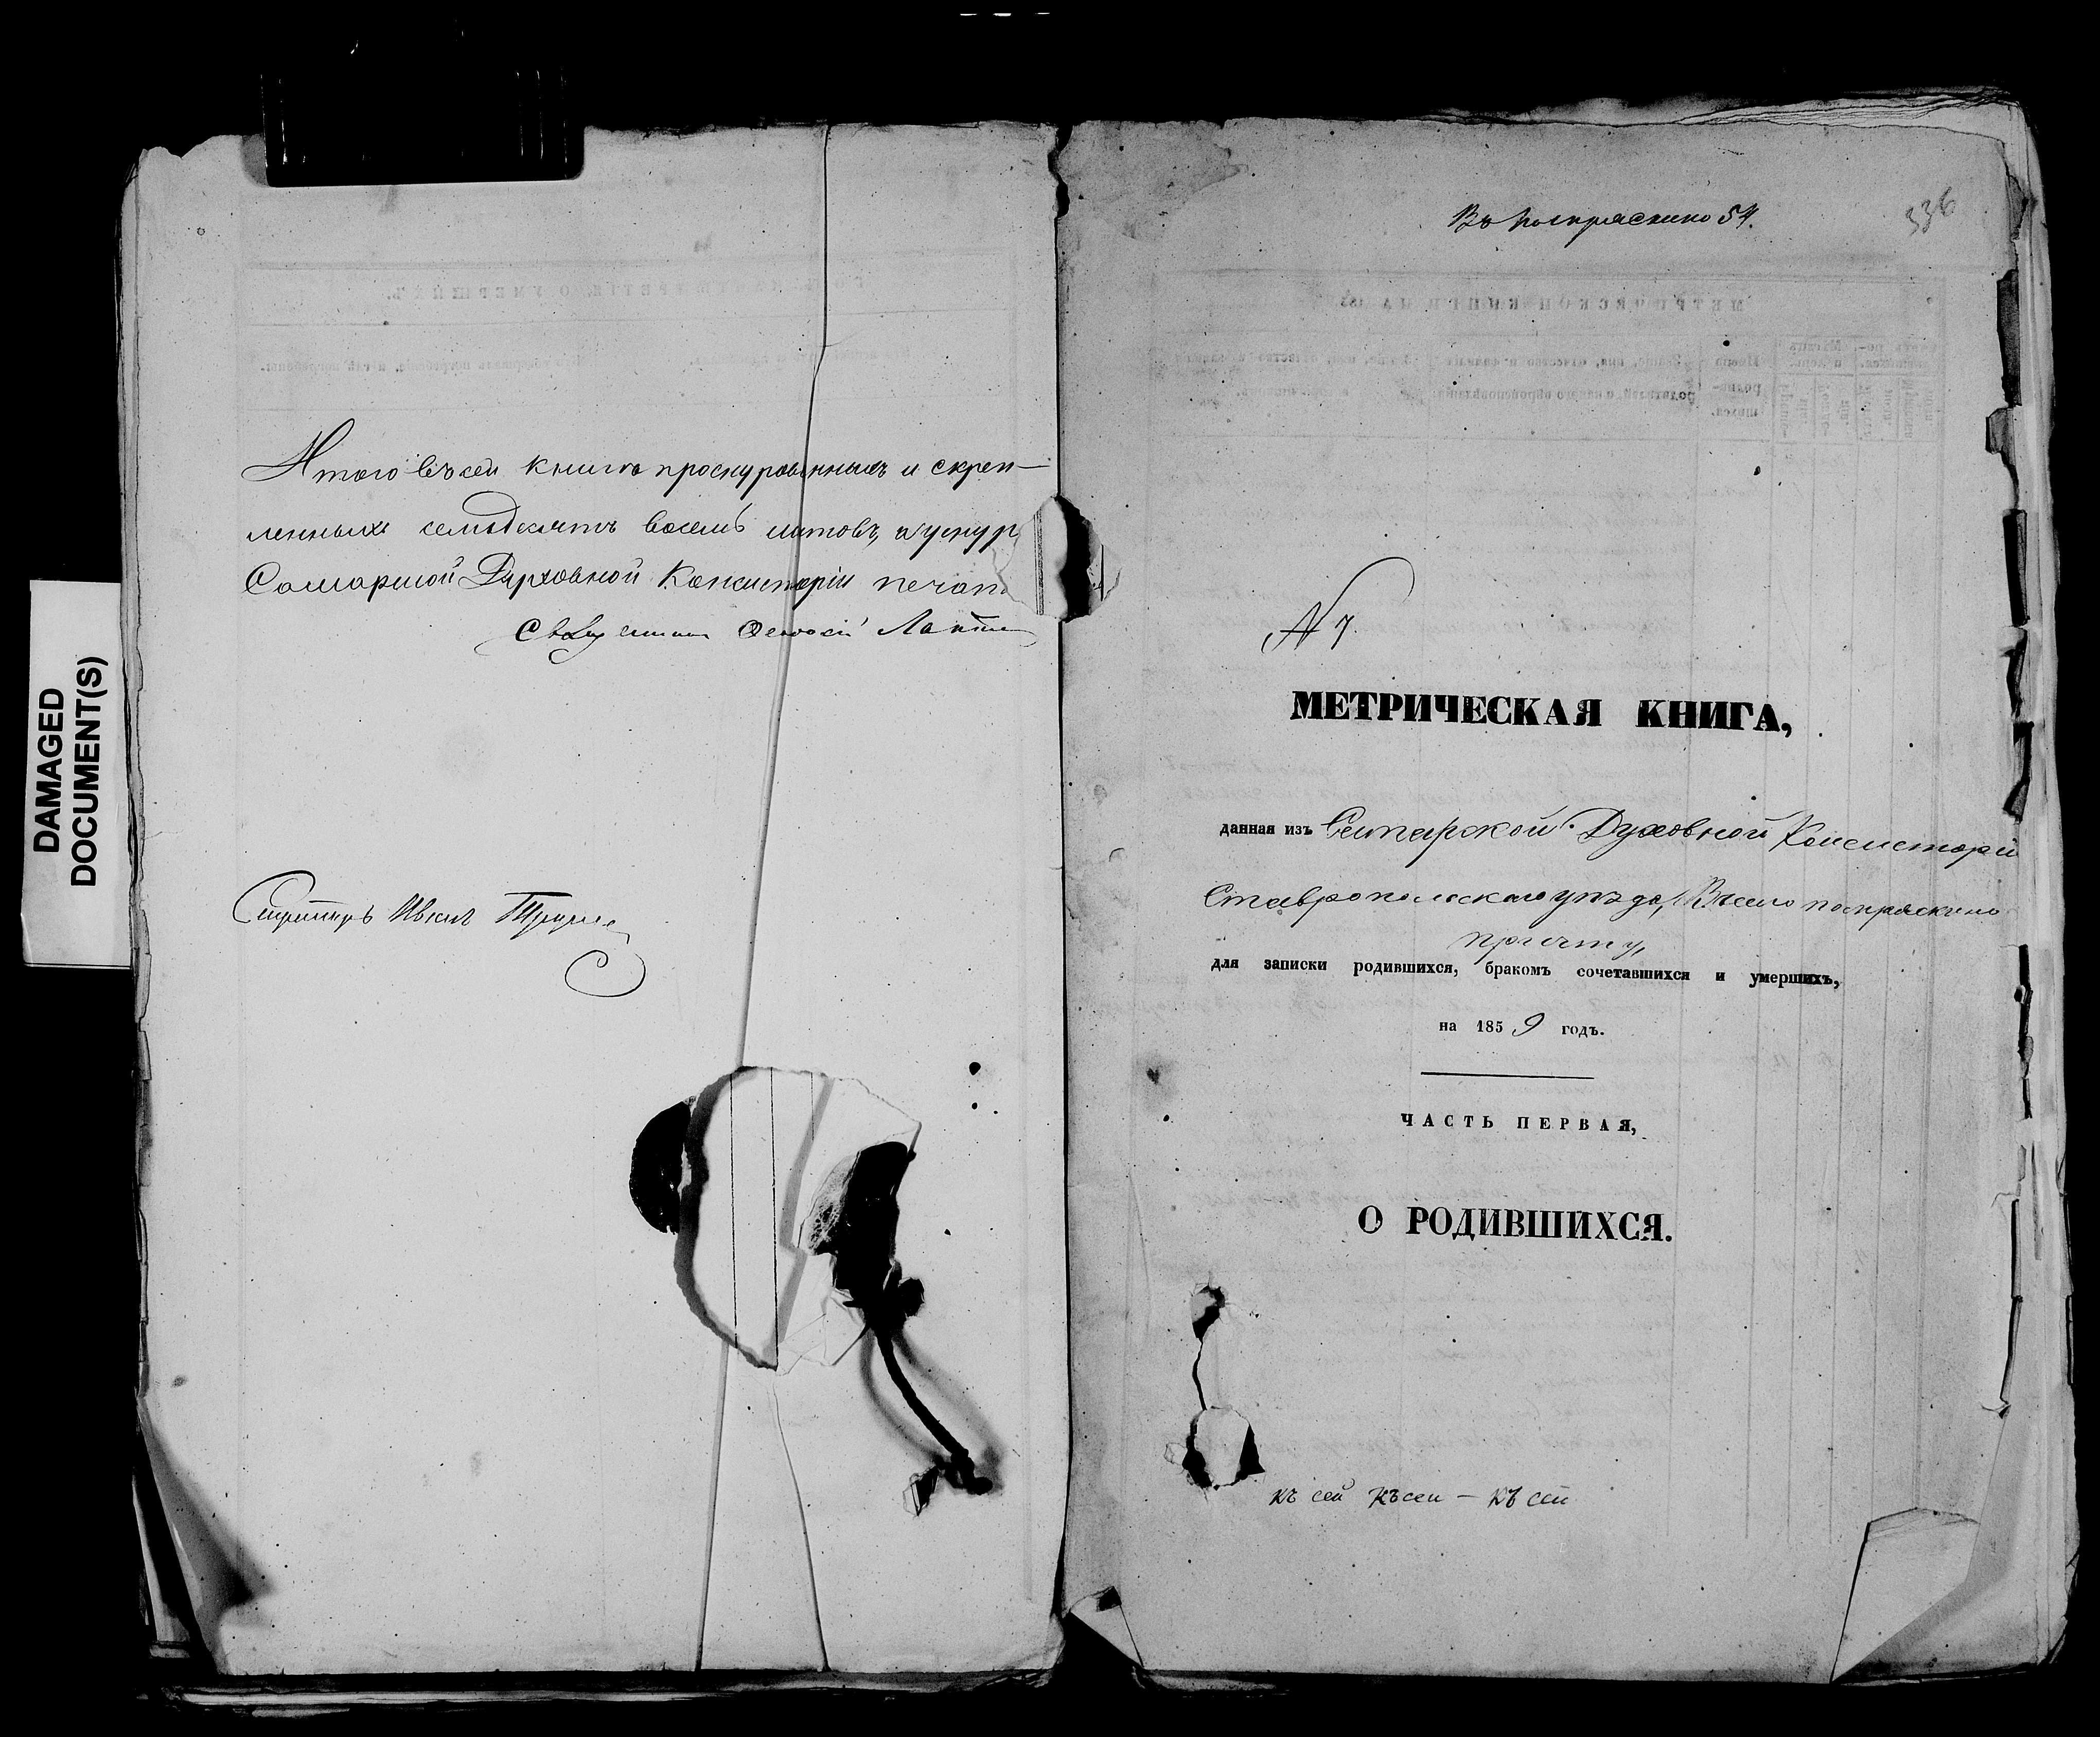 DAMAGED
DOCUMENT(S)
Итого въ сей книгѣ прошнурованныхъ и скреп-
ленныхъ семьдесятъ восемь листовъ,
Самарской Духовной Консисторіи печать
Священникъ
Секретарь Иванъ
Въ Поскряскино 54.
336
№ 7.
МЕТРИЧЕСКАЯ КНИГА,
данная изъ Самарской Духовной Консисторіи
Ставропольскаго уѣзда, Въ село
причту,
для записки родившихся, бракомъ сочетавшихся и умершихъ,
на 1859 годъ.
ЧАСТЬ ПЕРВАЯ,
О РОДИВШИХСЯ.
къ сей къ сей — къ сей